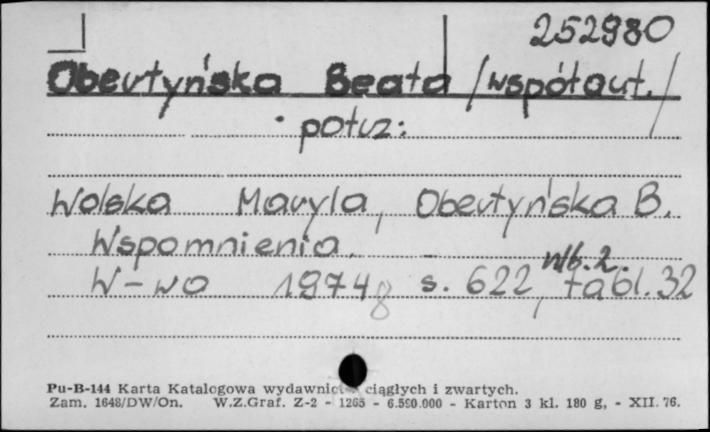 252980
Obertyńska Beata /współaut./
potrz:
Wolska Maryla, Obertyńska B.
Wspomnienia.
nlb. 2.
W-wa 1974 8 s. 622, tabl. 32
Pu-B-144 Karta Katalogowa wydawnict ciągłych i zwartych.
Zam. 1648/DW/On. W.Z.Graf. Z-2 - 1265 - 6.590.000 - Karton 3 kl. 180 g, - XII. 76.